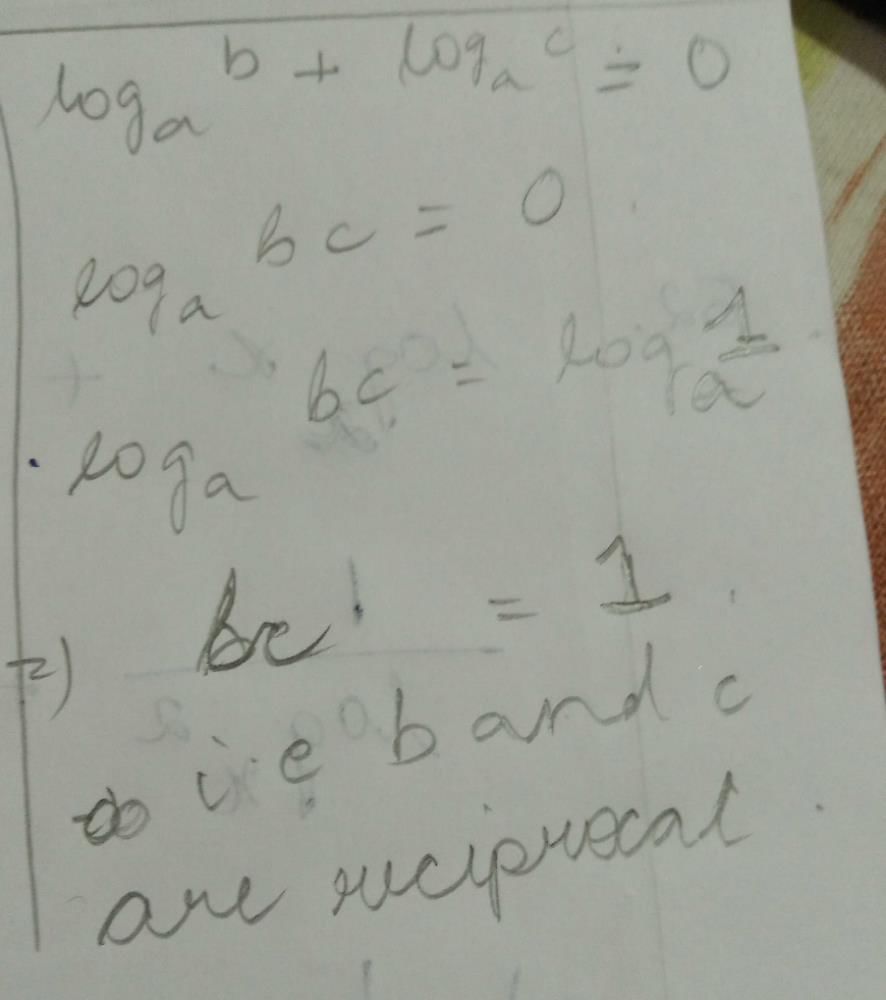 logₐ b + logₐ c = 0
logₐ bc = 0
logₐ bc = logₐ 1
=) bc = 1
i.e b and c
are reciprocal.